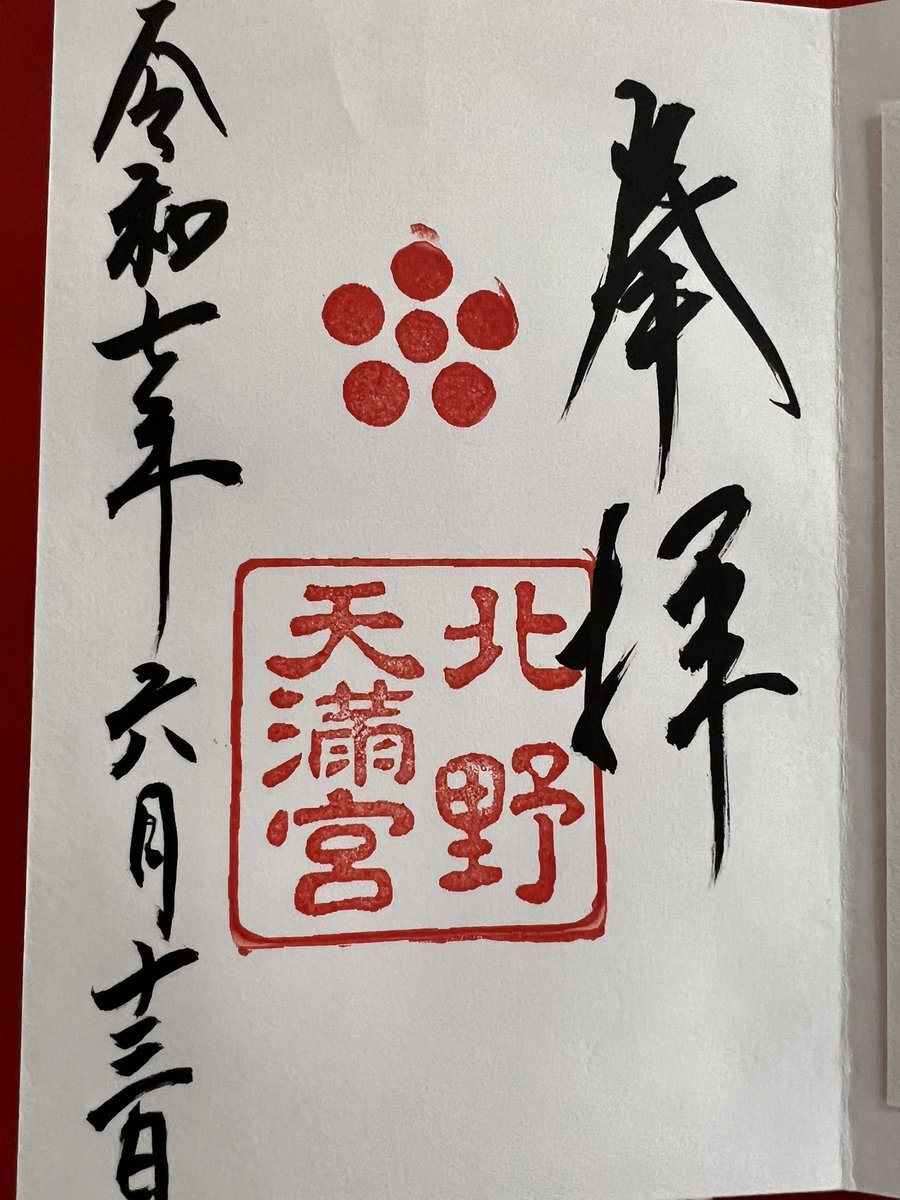 奉拝
北野
天満宮
令和七年六月十三日